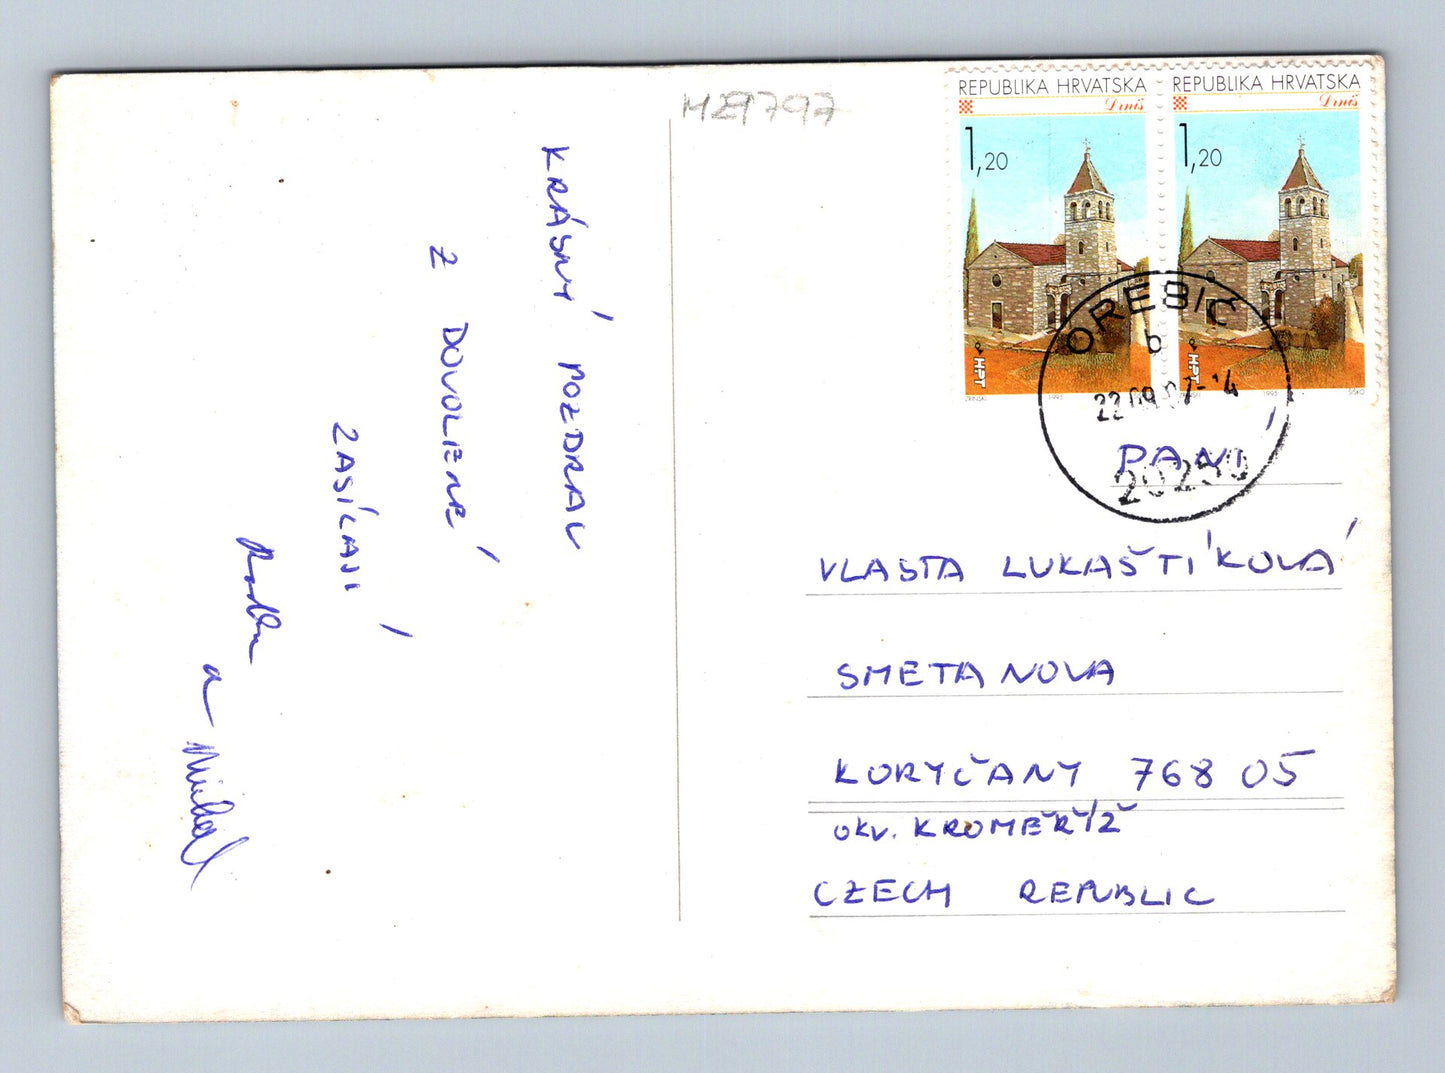 KRÁSNÝ POZDRAV
Z DOVOLENÉ
ZASÍLAJÍ
Radka
a
Michal
M29797
REPUBLIKA HRVATSKA
Drniš
1,20
HPT
1993
REPUBLIKA HRVATSKA
Drniš
1,20
HPT
1993
OREBIĆ
b
20250
PANÍ
VLASTA LUKAŠTÍKOVÁ
SMETANOVA
KORYČANY 768 05
OKV. KROMĚŘÍŽ
CZECH REPUBLIC